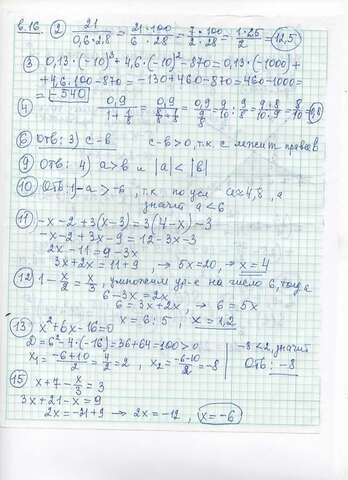 в.16 (2) 21/(0,6·2,8) = (21·100)/(6·28) = (7·100)/(2·28) = (1·25)/2 = 12,5
(3) 0,13·(-10)³ + 4,6·(-10)² - 870 = 0,13·(-1000) +
+ 4,6·100 - 870 = -130 + 460 - 870 = 460 - 1000 =
= -540
(4) 0,9/(1+1/8) = 0,9/(9/8) = 9/10 : 9/8 = (9·8)/(10·9) = 8/10 = 0,8
(6) Отв: 3) c-b c-b>0, т.к. c лежит правее b
(9) Отв: 4) a>b и |a| < |b|
(10) Отв: 1) -a > -6, т.к. по усл a≈4,8, а
значит a < 6
(11) -x-2+3(x-3)=3(4-x)-3
-x-2+3x-9=12-3x-3
2x-11=9-3x
3x+2x=11+9 → 5x=20, → x=4
(12) 1-x/2=x/3, умножим ур-е на число 6, тогда
6-3x=2x
6=3x+2x, → 6=5x
x=6:5, x=1,2
(13) x²+6x-16=0
D=6²-4·(-16)=36+64=100>0
x₁=(-6+10)/2=4/2=2, x₂=(-6-10)/2=-8
-8<2, значит
Отв: -8
(15) x+7-x/3=3
3x+21-x=9
2x=-21+9 → 2x=-12, x=-6